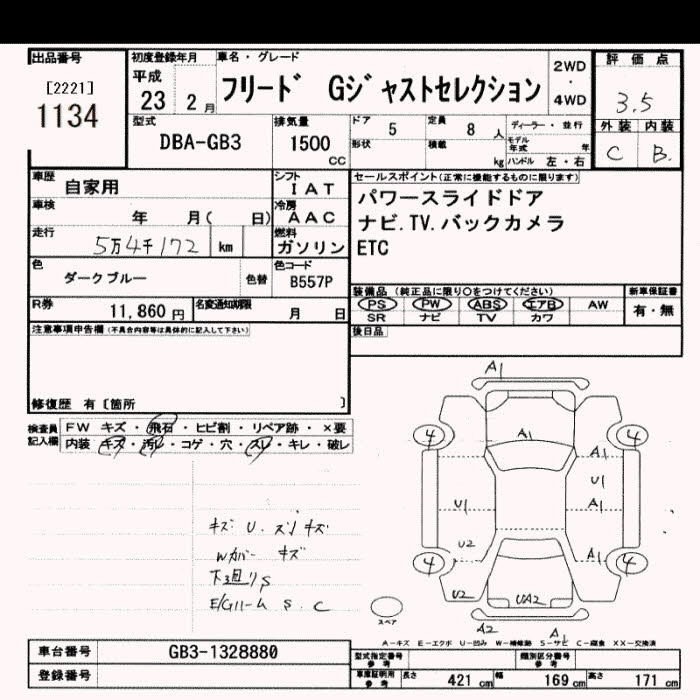 出品番号
[2221]
1134
初度登録年月
平成
23 2月
車名・グレード
フリード Gジャストセレクション
2WD
・
4WD
評価点
3.5
外装 内装
C B
型式
DBA-GB3
排気量
1500
CC
ドア 5
定員 8 人
ディーラー・並行
形状
積載 kg
モデル年式 年
ハンドル 左・右
車歴
自家用
シフト
IAT
車検
年 月( 日)
冷房
AAC
走行
5万4千172 km
燃料
ガソリン
セールスポイント(正常に機能するものに限ります)
パワースライドドア
ナビ.TV.バックカメラ
ETC
色
ダークブルー
色替
色コード
B557P
装備品(純正品に限り○をつけてください)
PS PW ABS エアB AW
SR ナビ TV カワ
新車保証書
有・無
R券
11,860円
名変通知期限
月 日
後日品
注意事項申告欄(不具合内容等は具体的に記入して下さい)
修復歴 有〔箇所 〕
検査員記入欄
FW キズ・飛石・ヒビ割・リペア跡・×要
内装 キズ・汚レ・コゲ・穴・スレ・キレ・破レ
A1
A1
4 4
A1
U1
U1 A1
U2 A1
4 4
U2 UA2
A2 A1
キズ U. スリキズ
Wカバー キズ
下廻りS
E/Gルーム S. C
スペア
A-キズ E-エクボ U-凹み W-補修跡 S-サビ C-腐食 XX-交換済
車台番号
GB3-1328880
登録番号
型式指定番号
参考
類別区分番号
参考
車庫証明用
参考
長さ 421 cm 幅 169 cm 高さ 171 cm